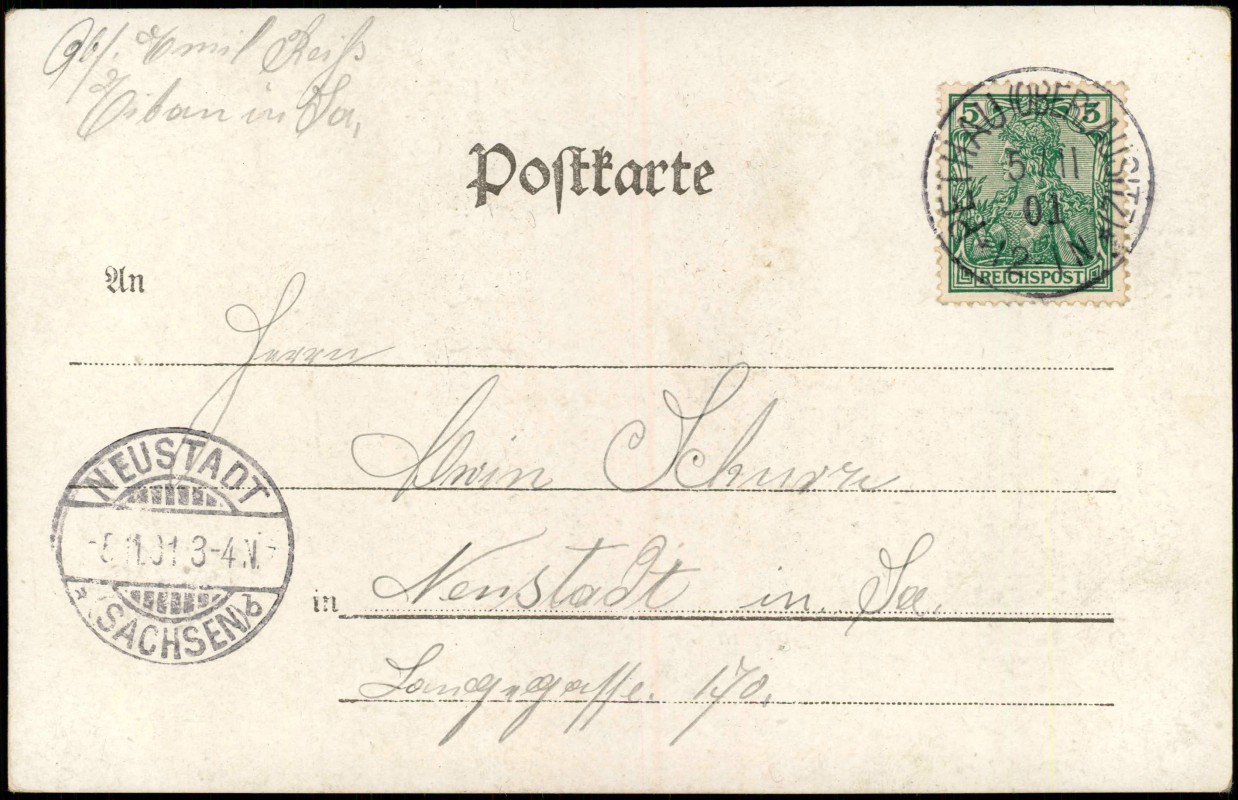 Abs. Emil Reiß
Eibau in Sa.
Postkarte
5 5
REICHSPOST
(OBERLAUSITZ)
5 / 11
01
*12-1N*
An
Herrn
Erwin Schurz
in Neustadt in Sa.
Langegasse. 170.
NEUSTADT
-5.11.01 3-4.N.
(SACHSEN) b